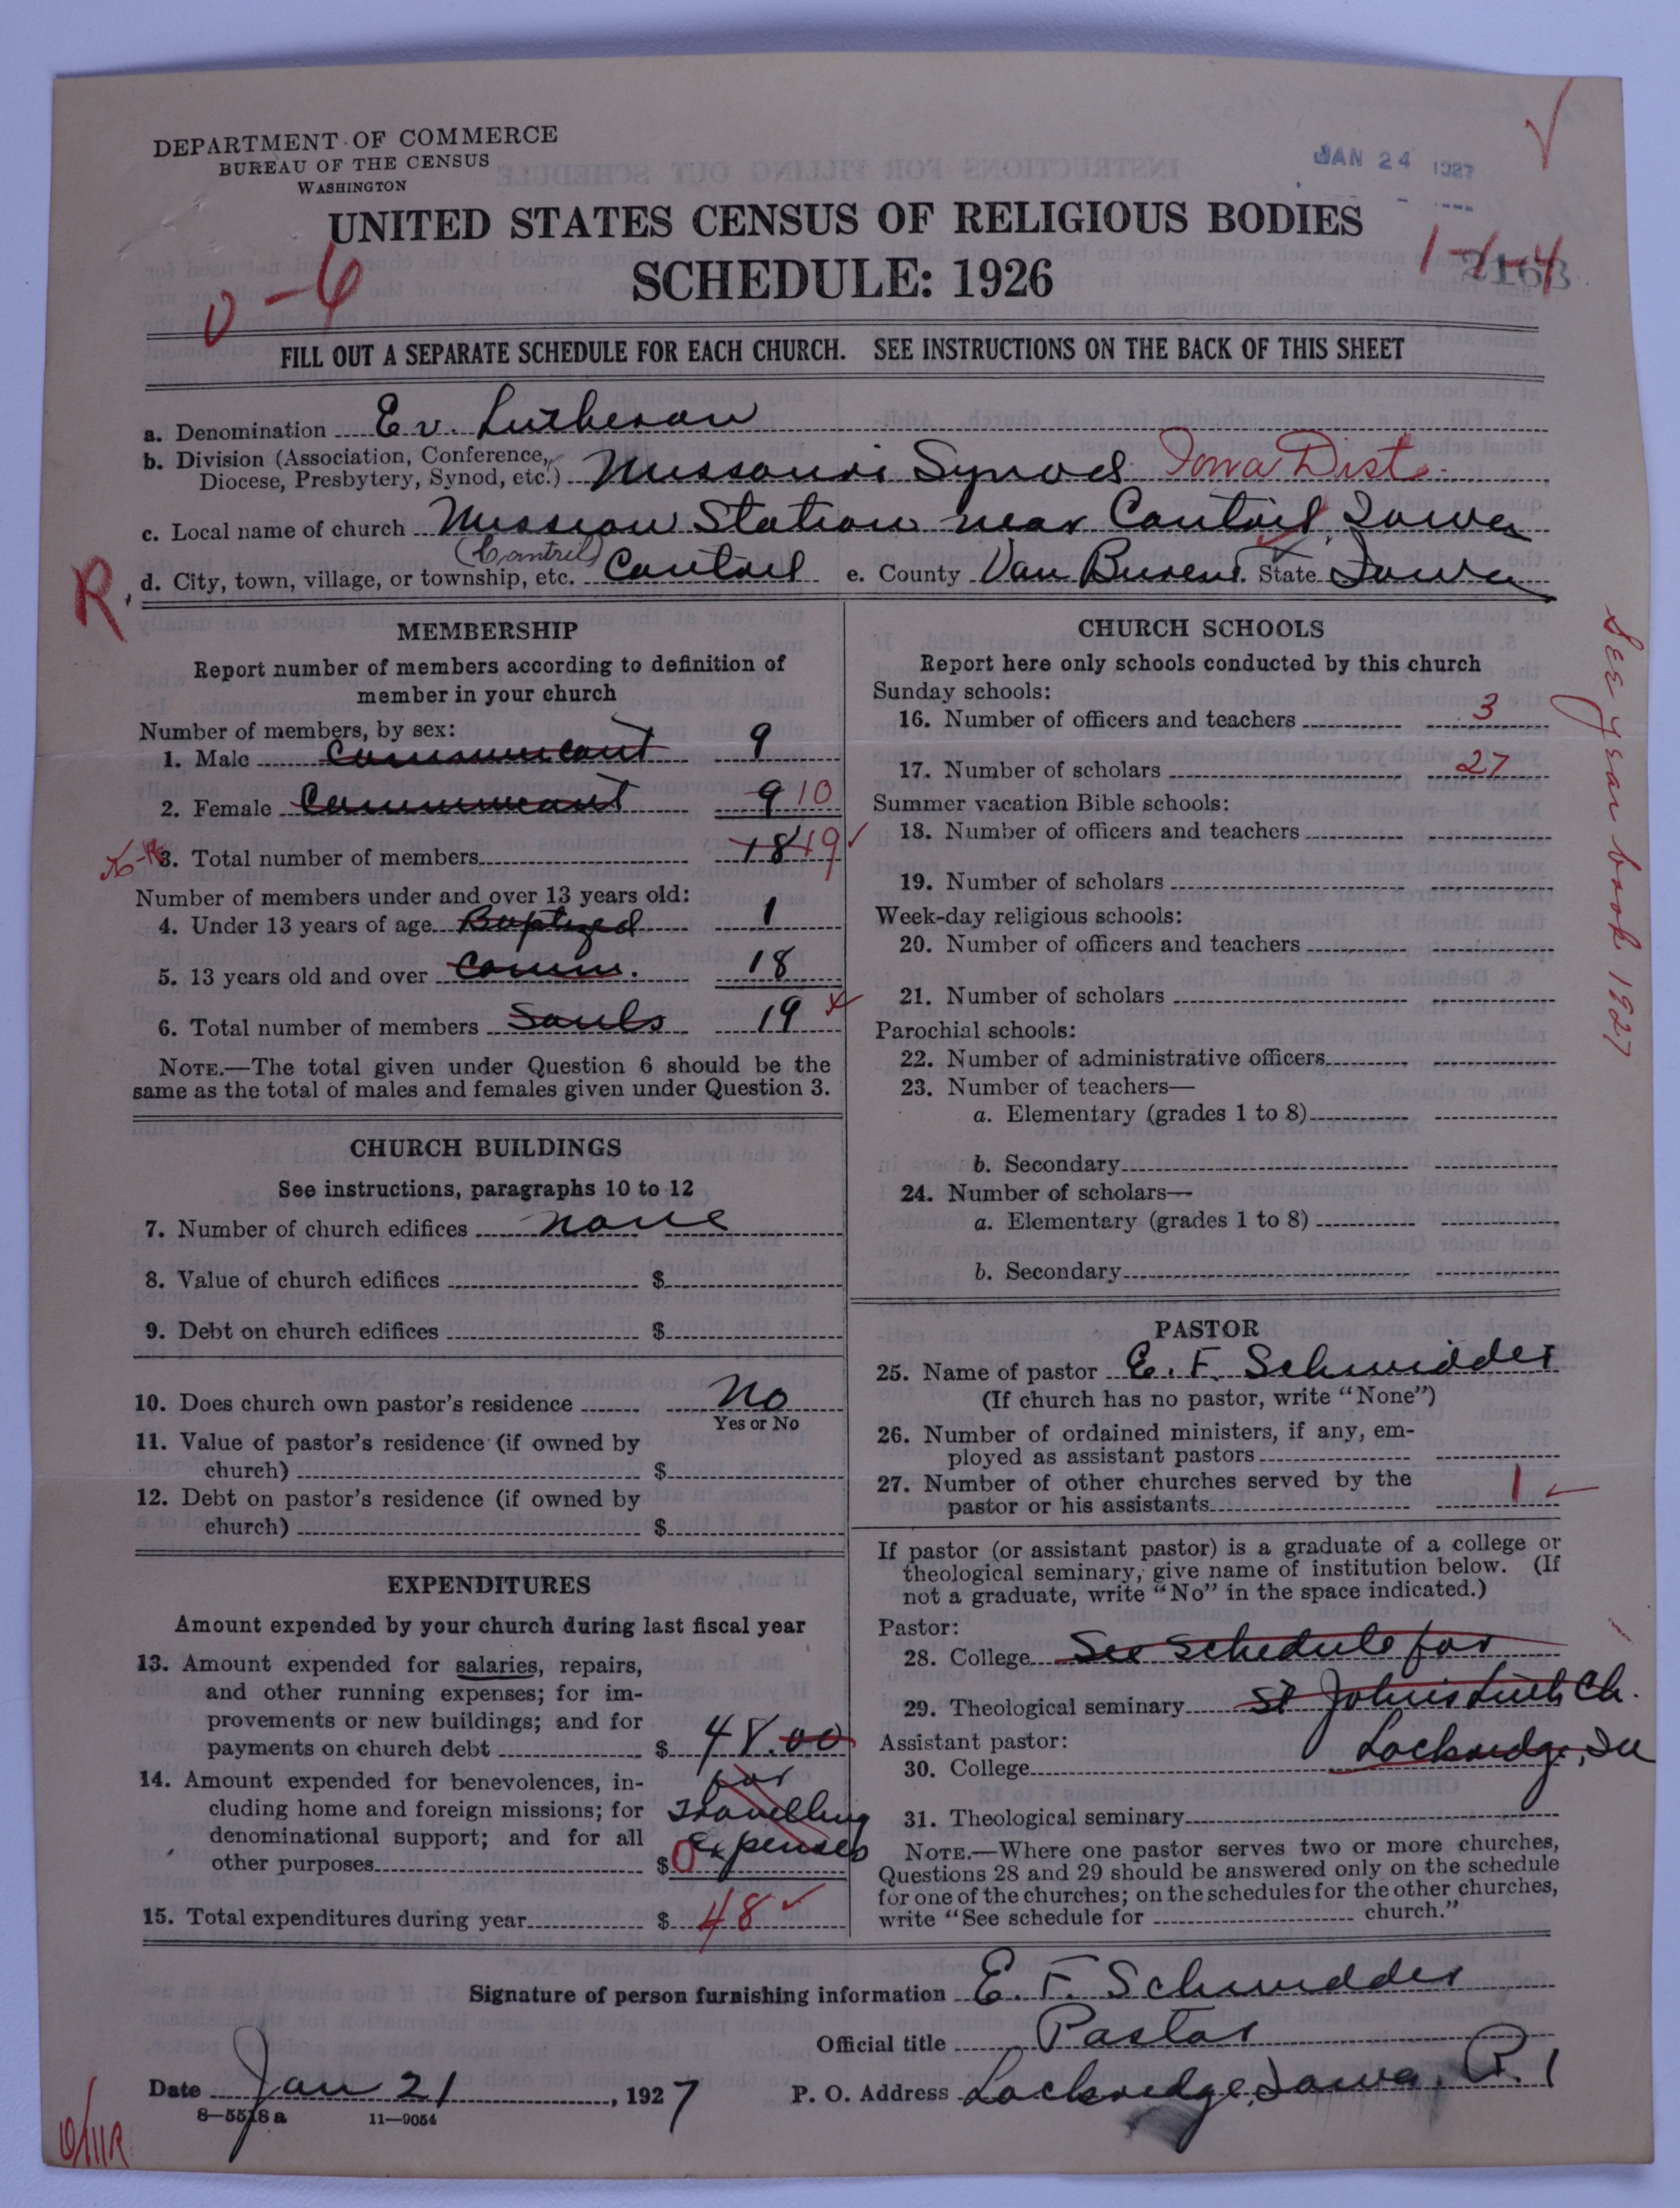 DEPARTMENT OF COMMERCE
BUREAU OF THE CENSUS
WASHINGTON
JAN 24 1927
UNITED STATES CENSUS OF RELIGIOUS BODIES
SCHEDULE: 1926
1-1-4
2163
0-6
FILL OUT A SEPARATE SCHEDULE FOR EACH CHURCH. SEE INSTRUCTIONS ON THE BACK OF THIS SHEET
a. Denomination Ev. Lutheran
b. Division (Association, Conference, Diocese, Presbytery, Synod, etc.) Missouri Synod Iowa Dist.
c. Local name of church Mission Station near Cantril, Iowa
(Cantril)
R. d. City, town, village, or township, etc. Cantril e. County Van Buren. State Iowa
MEMBERSHIP
Report number of members according to definition of
member in your church
Number of members, by sex:
1. Male Communicant 9
2. Female Communicant 9 10
3. Total number of members 18 19
Number of members under and over 13 years old:
4. Under 13 years of age Baptized 1
5. 13 years old and over Comm. 18
6. Total number of members Souls 19
NOTE.—The total given under Question 6 should be the
same as the total of males and females given under Question 3.
CHURCH BUILDINGS
See instructions, paragraphs 10 to 12
7. Number of church edifices none
8. Value of church edifices $
9. Debt on church edifices $
10. Does church own pastor's residence No
Yes or No
11. Value of pastor's residence (if owned by
church) $
12. Debt on pastor's residence (if owned by
church) $
EXPENDITURES
Amount expended by your church during last fiscal year
13. Amount expended for salaries, repairs,
and other running expenses; for im-
provements or new buildings; and for
payments on church debt $ 48.00
14. Amount expended for benevolences, in- for
cluding home and foreign missions; for Travelling
denominational support; and for all expenses
other purposes $ 0
15. Total expenditures during year $ 48
CHURCH SCHOOLS
Report here only schools conducted by this church
Sunday schools:
16. Number of officers and teachers 3
17. Number of scholars 27
Summer vacation Bible schools:
18. Number of officers and teachers
19. Number of scholars
Week-day religious schools:
20. Number of officers and teachers
21. Number of scholars
Parochial schools:
22. Number of administrative officers
23. Number of teachers—
a. Elementary (grades 1 to 8)
b. Secondary
24. Number of scholars—
a. Elementary (grades 1 to 8)
b. Secondary
PASTOR
25. Name of pastor E. F. Schmidder
(If church has no pastor, write "None")
26. Number of ordained ministers, if any, em-
ployed as assistant pastors
27. Number of other churches served by the
pastor or his assistants 1
If pastor (or assistant pastor) is a graduate of a college or
theological seminary, give name of institution below. (If
not a graduate, write "No" in the space indicated.)
Pastor:
28. College See Schedule for
29. Theological seminary St Johns Luth Ch.
Assistant pastor: Lockridge, Ia
30. College
31. Theological seminary
NOTE.—Where one pastor serves two or more churches,
Questions 28 and 29 should be answered only on the schedule
for one of the churches; on the schedules for the other churches,
write "See schedule for church."
See year book 1927
Signature of person furnishing information E. F. Schmidder
Official title Pastor
Date Jan 21, 1927 P. O. Address Lockridge, Iowa, R. 1
8-5518 a 11-9054